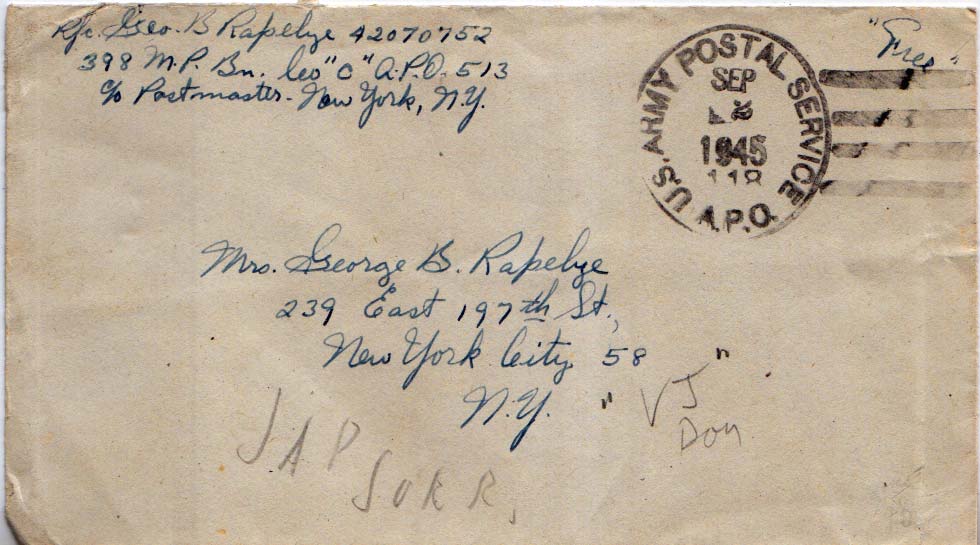 Pfc. Geo. B Rapelye 42070752
398 M.P. Bn. Co "C" A.P.O. 513
c/o Postmaster - New York, N.Y.
"Free"
U.S. ARMY POSTAL SERVICE
SEP
1945
118
A.P.O.
Mrs. George B. Rapelye
239 East 197th St.,
New York City 58
N.Y.
" VJ "
Day
JAP
SURR,